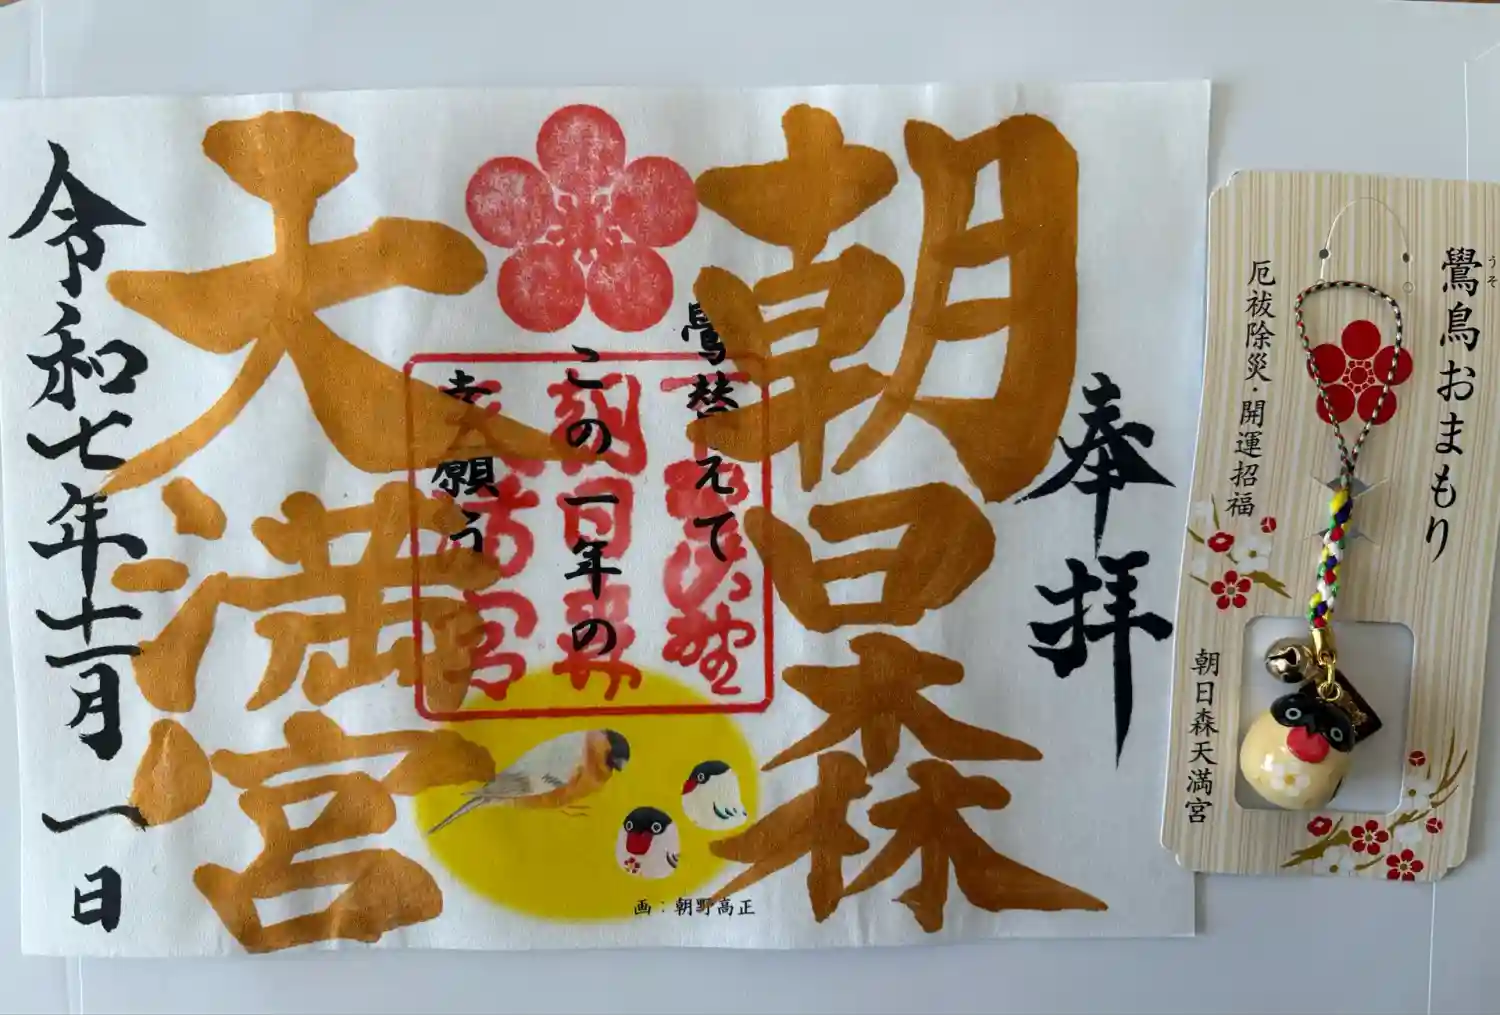 奉拝
朝日森
天満宮
鷽替えて
この一年の
幸願う
令和七年十一月一日
画：朝野高正
鷽鳥おまもり
うそ
厄祓除災・開運招福
朝日森天満宮